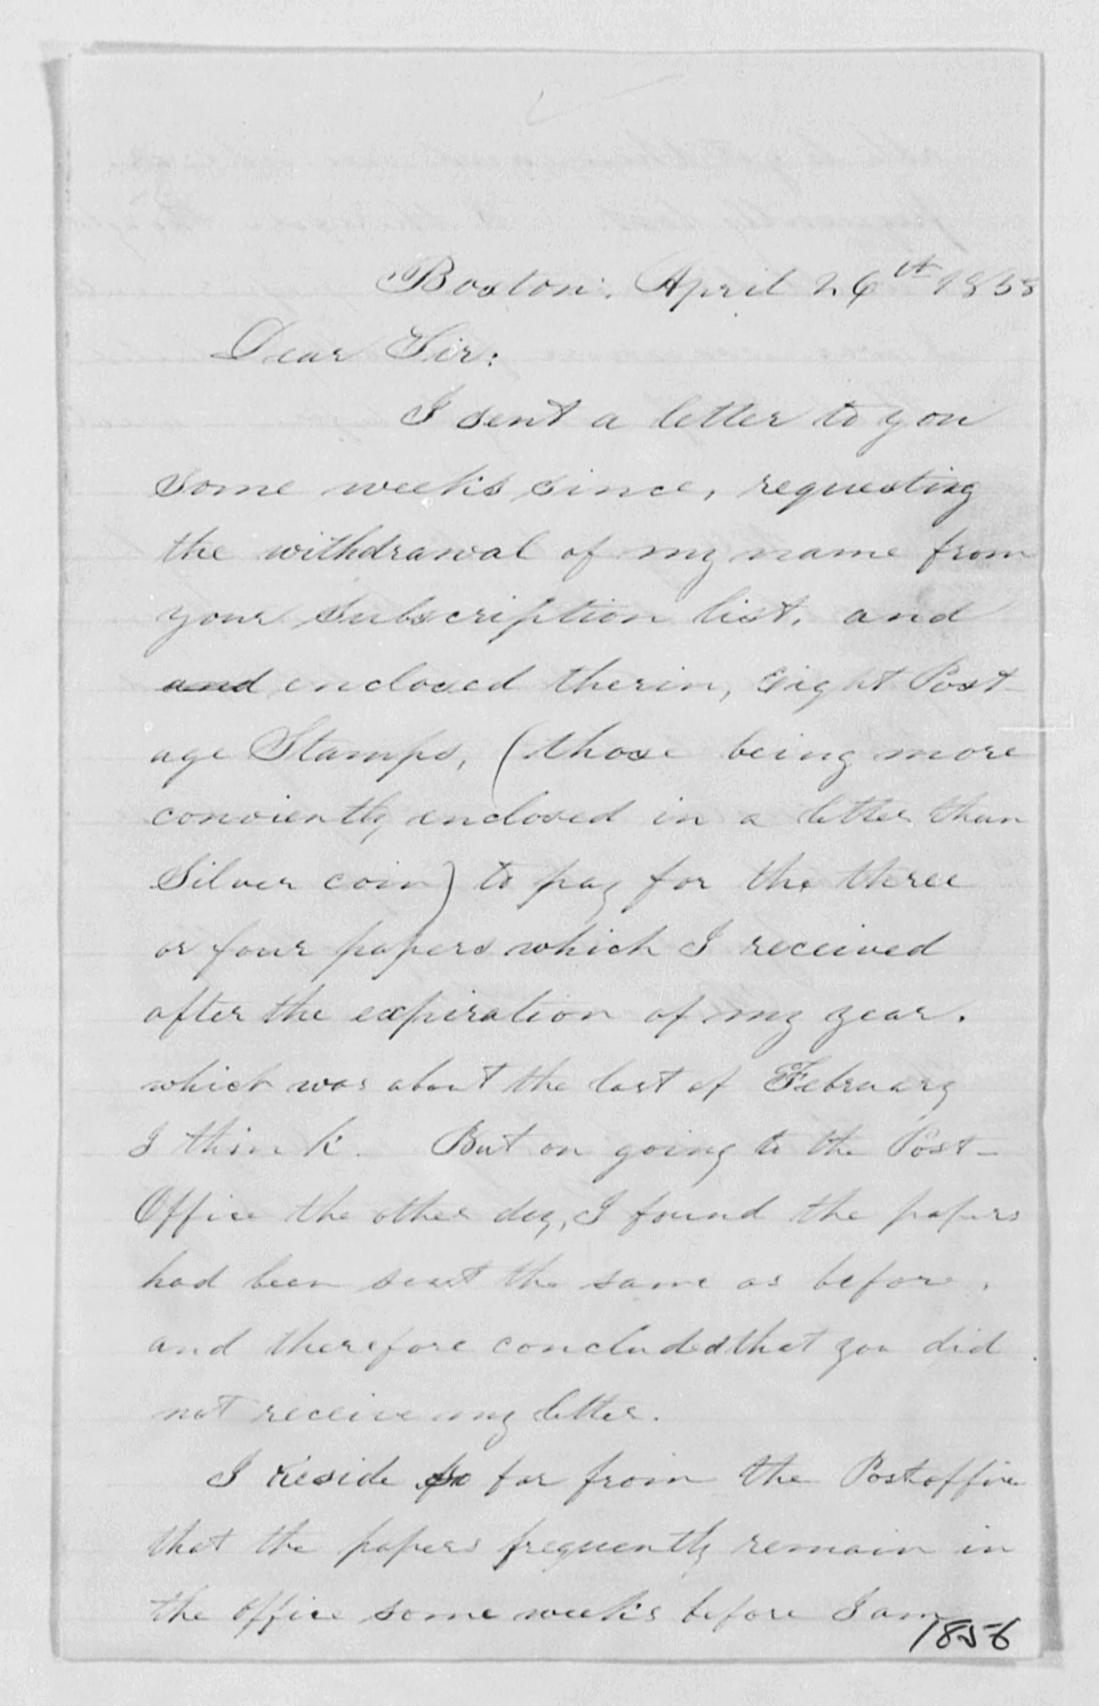 Boston, April 26th 1858
Dear Sir:
I sent a letter to you
some weeks since, requesting
the withdrawal of my name from
your Subscription list, and
and enclosed therin, Eight Post-
age Stamps, (those being more
conviently enclosed in a letter than
Silver coin) to pay for the three
or four papers which I received
after the expiration of my year.
which was about the last of February
I think. But on going to the Post-
Office the other day, I found the papers
had been sent the same as before,
and therefore concluded that you did
not receive my letter.
I reside so far from the Postoffice
that the papers frequently remain in
the office some weeks before I am
1856